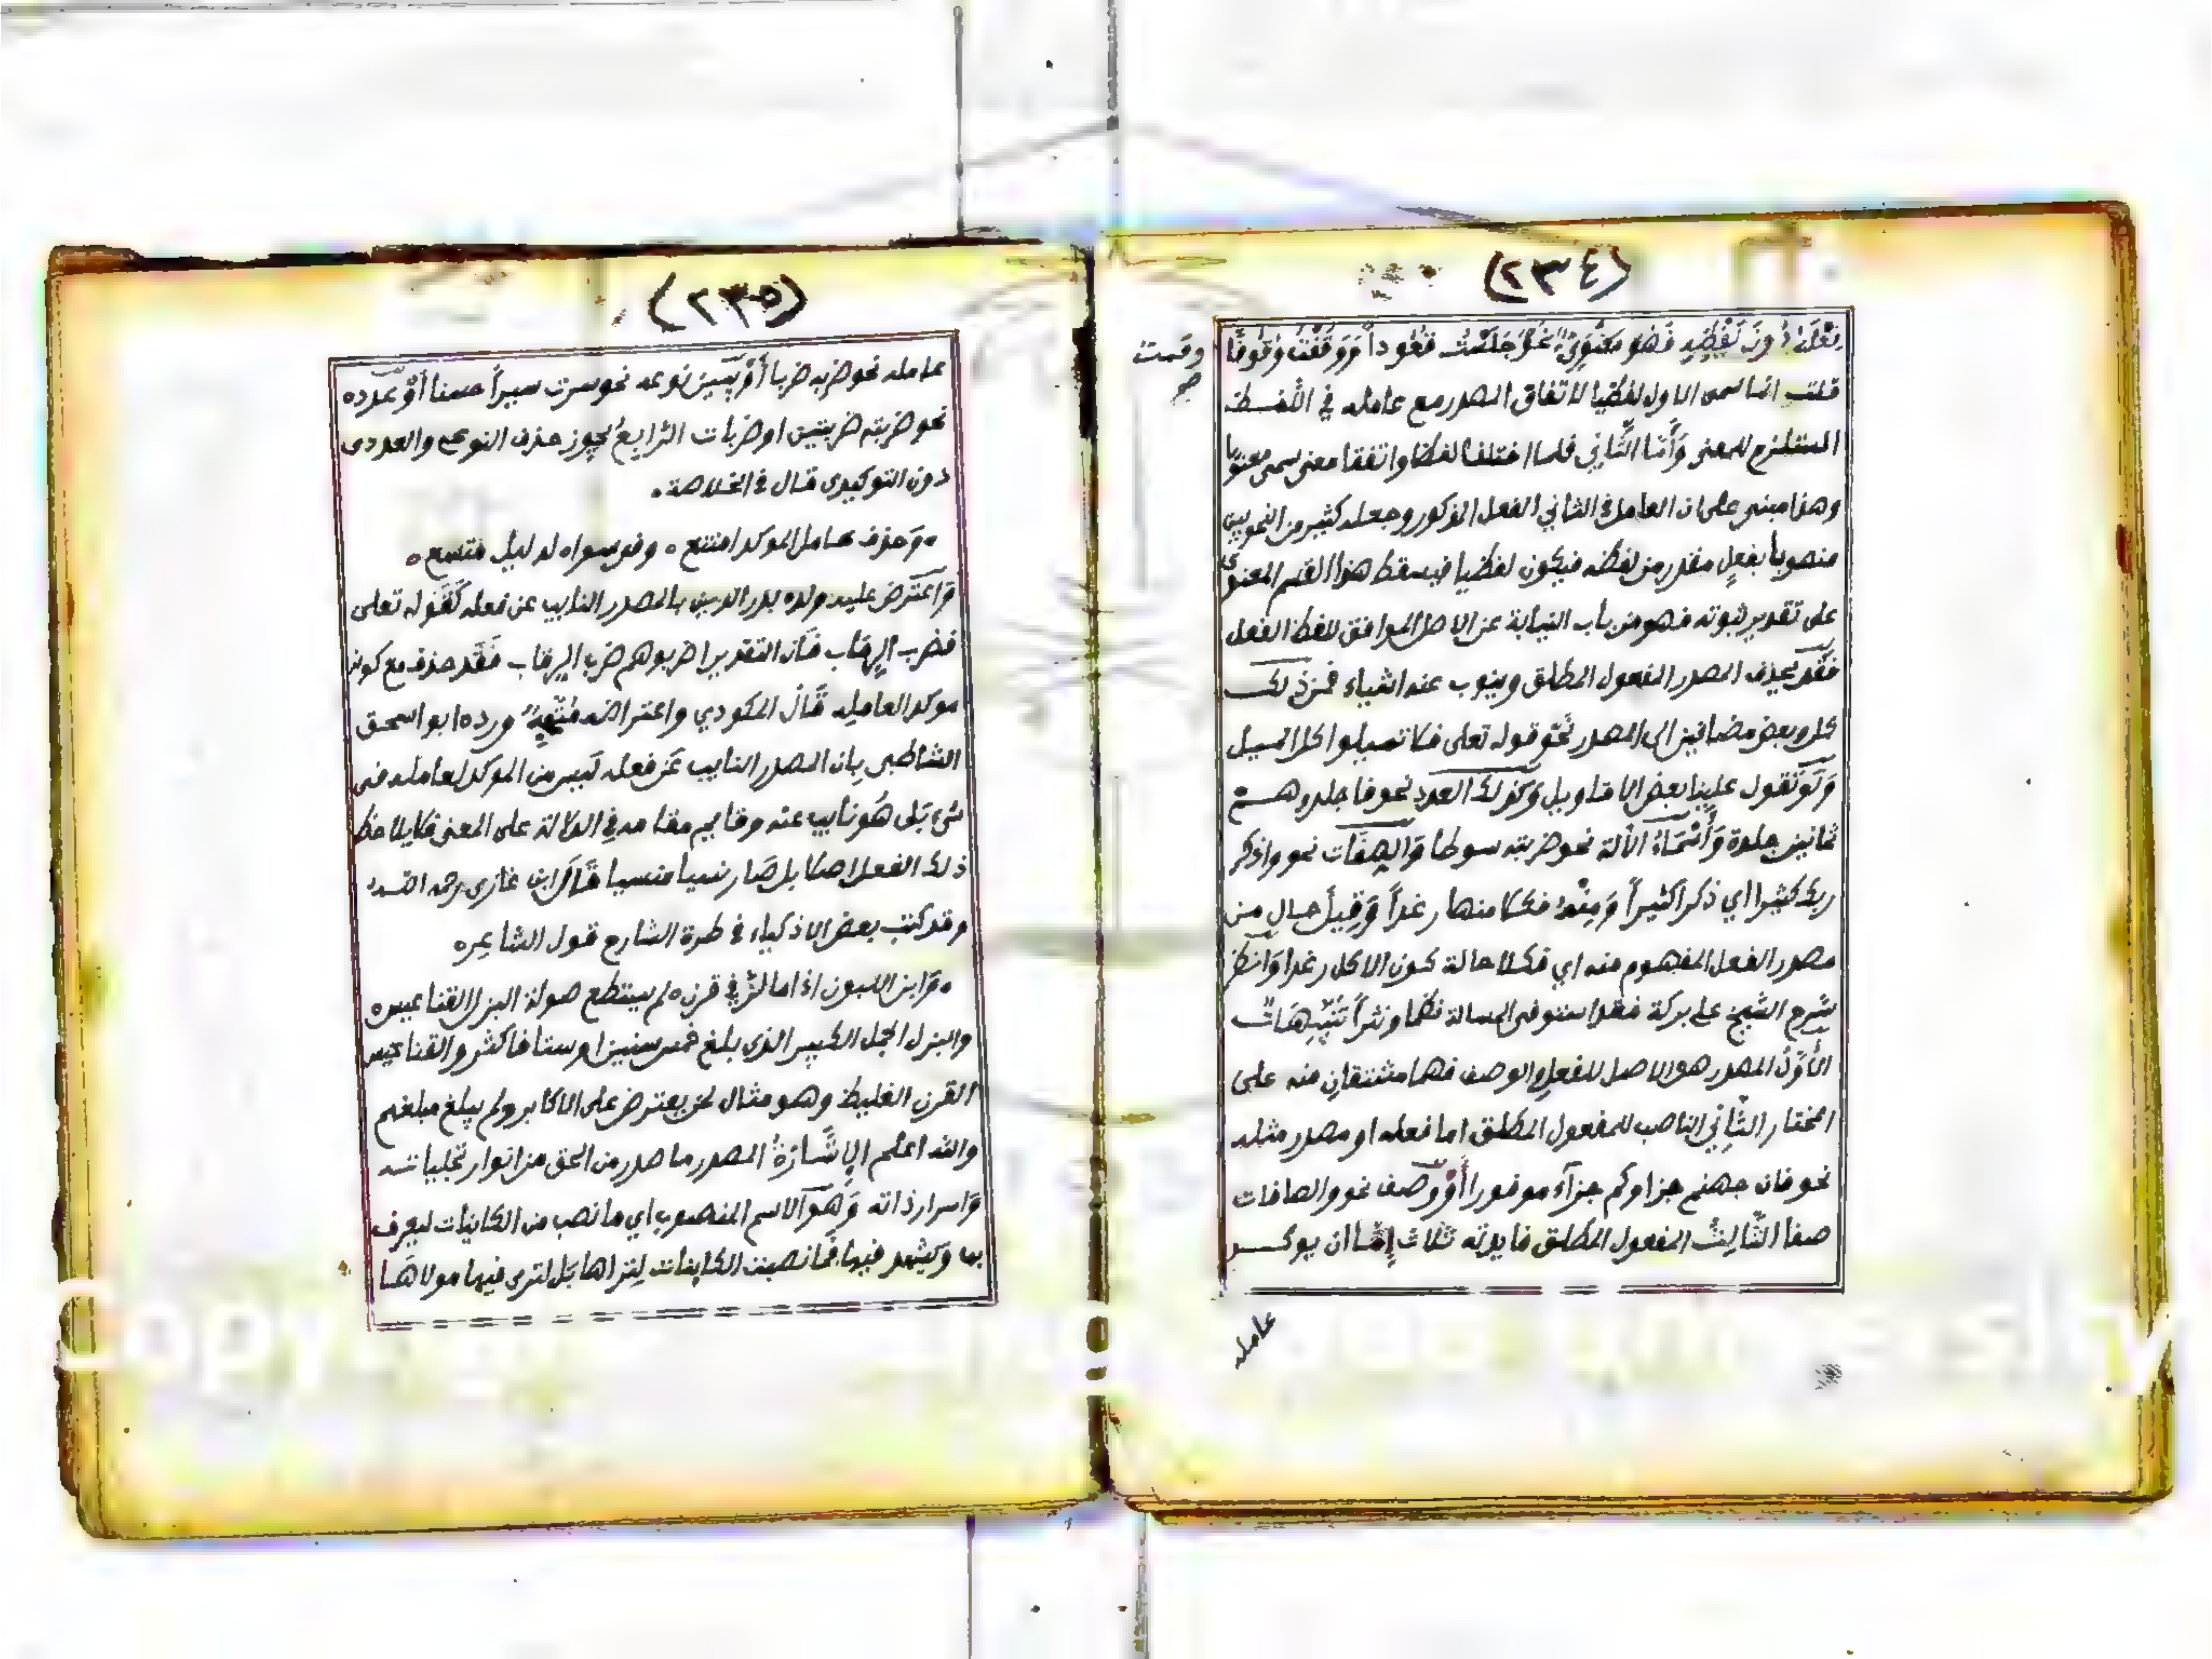 (٢٣٤)
فعله دُونَ لَفْظِهِ فَهُوَ مَعْنَوِيٌّ نحوُ جَلَسْتُ قُعُوداً وَوَقَفْتُ وُقُوفًا
وقمت
صح
قلت انما سمى الاول لفظيا لاتفاق المصدر مع عامله في اللفظ
المستلزم للمعنى وَأَمَّا الثَّانِي فلما اختلفا لفظا واتفقا معنى سمى معنويا
وهذا مبنى على ان العامل في الثاني الفعل المذكور وجعله كثير من النحويين
منصوبا بفعل مقدر من لفظه فيكون لفظيا فيسقط هذا القسم المعنوي
على تقدير ثبوته فهو من باب النيابة عن الاصل الموافق للفظ الفعل
فَقَد يحذف المصدر المفعول المطلق وينوب عنه اشياء فمن ذلك
كل وبعض مضافين الى المصدر نَحْو قوله تعلى فلا تميلوا كل الميل
وَلَوْ تقول علينا بعض الاقاويل وَكَذلك العدد نحو فاجلدوهم
ثمانين جلدة وَأَسْمَاءُ الآلة نحو ضربته سوطا وَالصِفَات نحو واذكر
ربك كثيرا اي ذكرا كثيراً وَمِنْهُ فكلا منها رغداً وَقِيلَ حال من
مصدر الفعل المفهوم منه اي فكلا حالة كون الاكل رغدا وَانظر
شَرح الشيخ على بركة فقد استوفى المسالة نظما ونثراً تَنْبِيهَات
الأَوَّلُ المصدر هو الاصل للفعل والوصف فهما مشتقان منه على
المختار الثَّانِي الناصب للمفعول المطلق اما فعله او مصدر مثله
نحو فان جهنم جزاوكم جزآء موفورا أَوْ وصف نحو والصافات
صفا الثَّالِثُ المفعول المطلق فايدته ثلاث إِمَّا ان يوكد
عامله
(٢٣٥)
عامله نحو ضربه ضربا أَوْ يبين نوعه نحو سرت سيراً حسنا أَوْ عدده
نحو ضربته ضربتين او ضربات الرَّابِعُ يجوز حذف النوعي والعددى
دون التوكيدى قال في الخلاصة.
وَحذف عامل الموكد امتنع ه وفى سواه لدليل متسع ه
وَاعترض عليه ولده بدر الدين بالمصدر النايب عن فعله كَقَوله تعلى
فضرب الرقاب فَان التقدير اضربوهم ضرب الرقاب فَقَد حذف مع كونه
موكدا لعامله قَالَ المكودي واعتراضه مُتَّجِهٌ ورده ابو اسحق
الشاطبى بان المصدر النايب عَن فعله ليس من الموكد لعامله فى
شىء بَل هُو نايب عنه وقايم مقامه في الدلالة على المعنى فلا يلاحظ
ذلك الفعل اصلا بل صَار نسيا منسيا قَالَ ابن غازى رحمه الله
وقد كتب بعض الاذكياء في طرة الشارح قول الشاعر ه
وَابن اللبون اذا ما لز في قرن ه لم يستطع صولة البزل القناعيس ه
والبزل الجمل الكبير الذى بلغ خمس سنين او ستا فاكثر والقناعيس
القرن الغليظ وهو مثال لمن يعترض على الاكابر ولم يبلغ مبلغهم
والله اعلم الإِشَارَةُ المصدر ما صدر من الحق من انوار تجلياته
وَاسرار ذاته وَهُوَ الاسم المنصوب اي ما نصب من الكاينات ليعرف
بها وَيشهد فيها فَما نصبت الكاينات لِتراها بَل لترى فيها مولاهَا